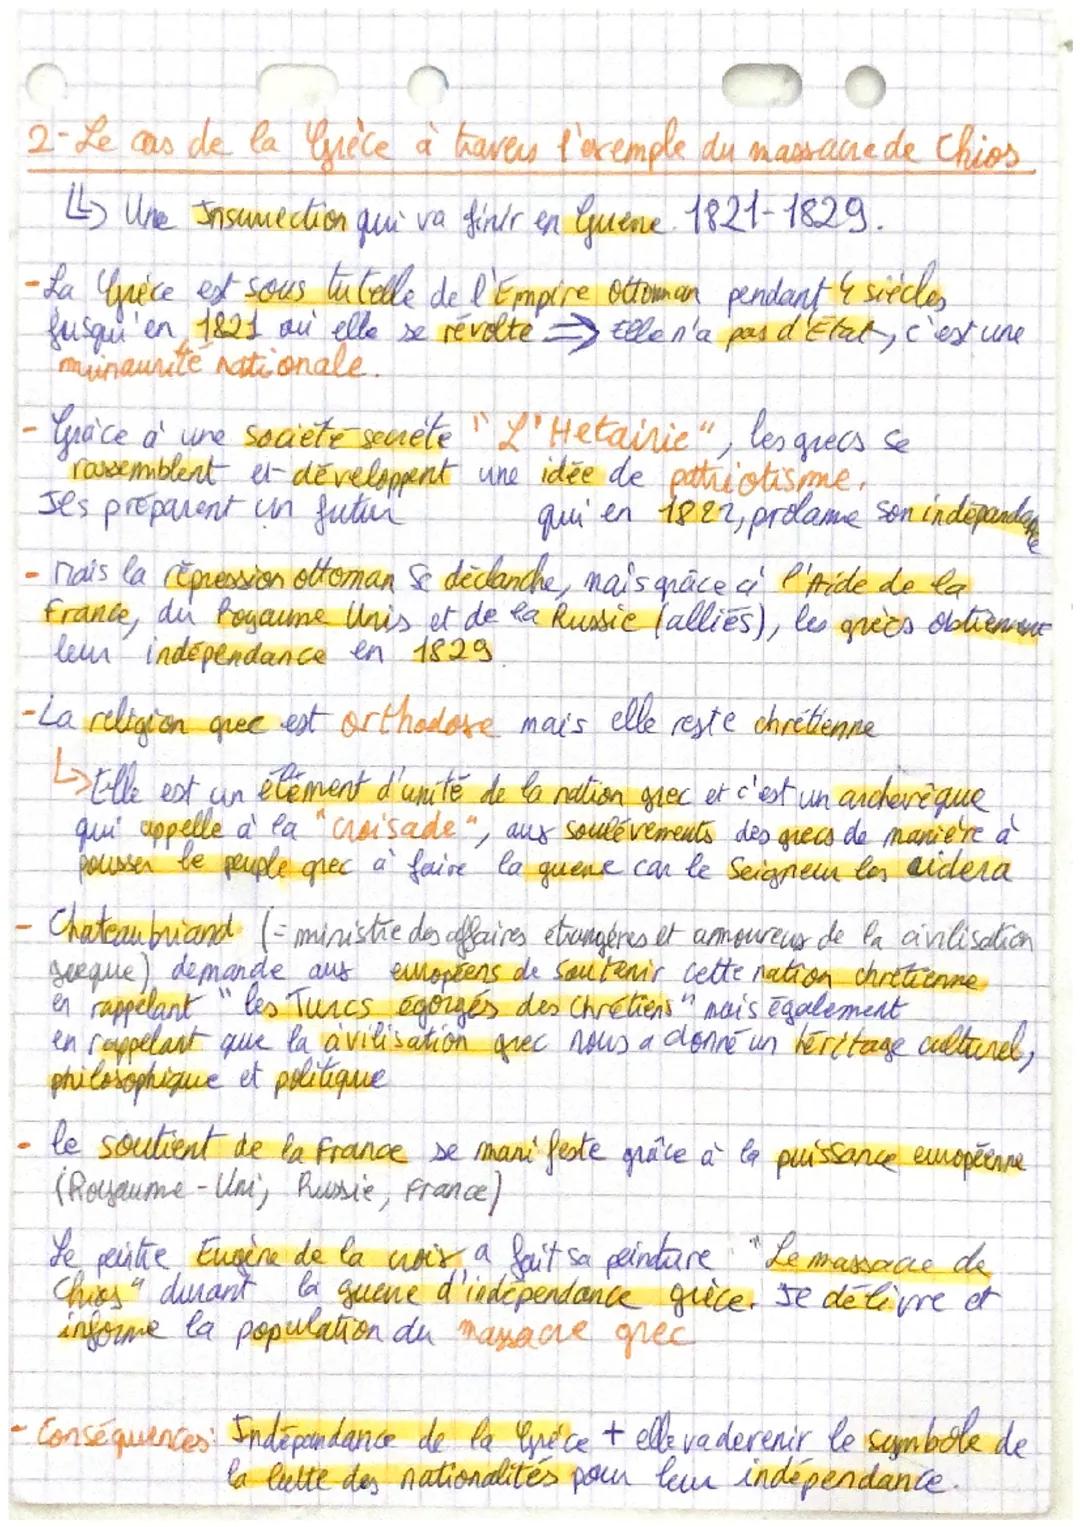 2-Le cas de la Grèce à travers l'exemple du massacre de Chios
↳ Une Insurrection qui va finir en Guerre. 1821-1829.
-La Grèce est sous tutelle de l'Empire Ottoman pendant 4 siècles
jusqu'en 1821 où elle se révolte ⇒ Elle n'a pas d'État, c'est une
minaurité nationale.
- Grâce à une société secrète "L'Hetairie", les grecs se
rassemblent et développent une idée de patriotisme.
Ils préparent un futur qui en 1822, prolame son indépendance
- Mais la répression ottoman se déclanche, mais grâce à l'Aide de la
France, du Royaume Unis et de la Russie (alliés), les grècs obtiennent
leur indépendance en 1829
-La religion grec est orthodoxe mais elle reste chrétienne
↳ Elle est un élément d'unité de la nation grec et c'est un archevêque
qui appelle à la "croisade", aux soulèvements des grecs de manière à
pousser le peuple grec à faire la guerre car le Seigneur les aidera
- Chateaubriand (= ministre des affaires étrangères et amoureux de la civilisation
grecque) demande aux européens de soutenir cette nation chrétienne
en rappelant "les Turcs égorgés des Chrétiens" mais également
en rappelant que la civilisation grec nous a donné un héritage culturel,
philosophique et politique
- le soutient de la France se manifeste grâce à la puissance européenne
(Royaume-Uni, Russie, France)
Le peintre Eugène de la croix a fait sa peindure "Le massacre de
Chios" durant la guerre d'indépendance grèce. Il délivre et
informe la population du massacre grec
- Conséquences: Indépendance de la Grèce + elle va devenir le symbole de
la lutte des nationalités pour leur indépendance.